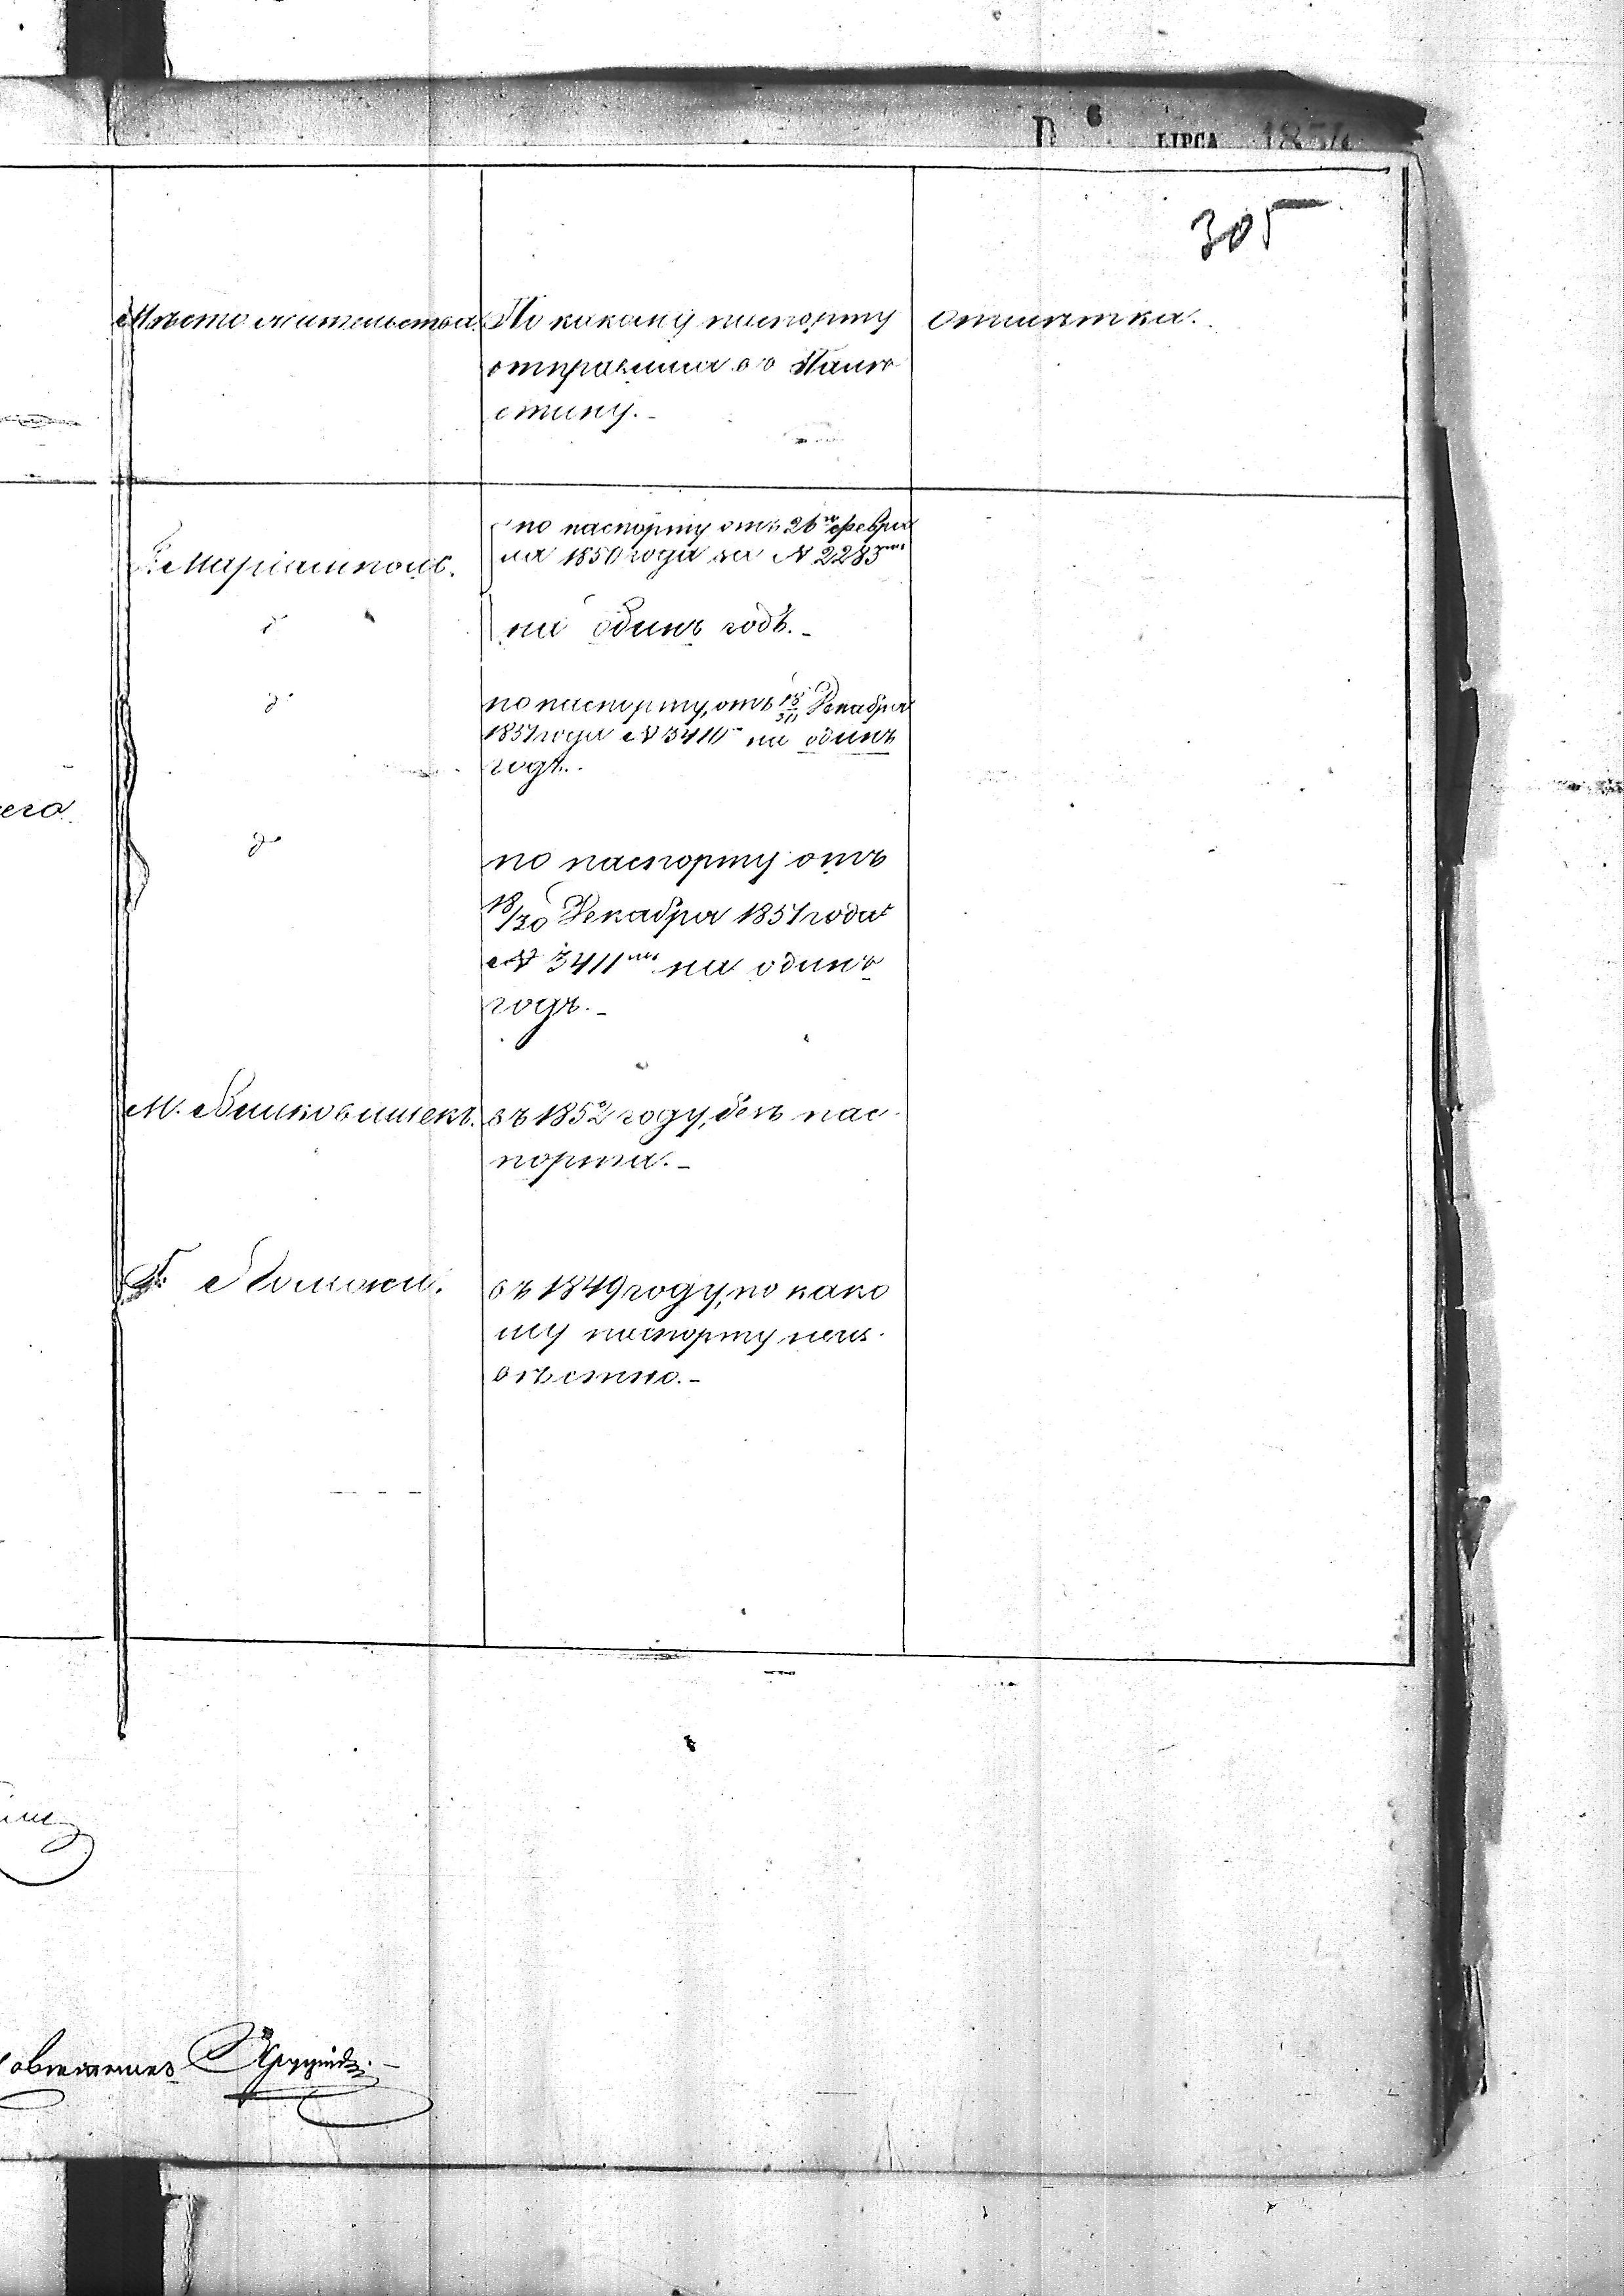 LIPCA 1854
305
Мѣсто жительства.
По какому паспорту
отправился въ Пале
стину.-
Отмѣтка.
Г. Маріамполь.
по паспорту отъ 26го Февра
ля 1850 года за № 2283
на одинъ годъ.-
д
до
по паспорту, отъ 18/30 Декабря
1851 года № 3410 на одинъ
годъ.
до
по паспорту отъ
18/30 Декабря 1851 года
№ 3411 на одинъ
годъ.-
М. Вилковишекъ.
въ 1852 году, безъ пас
порта.-
Г.
въ 1849 году, по како
му паспорту неиз
вѣстно.-
его